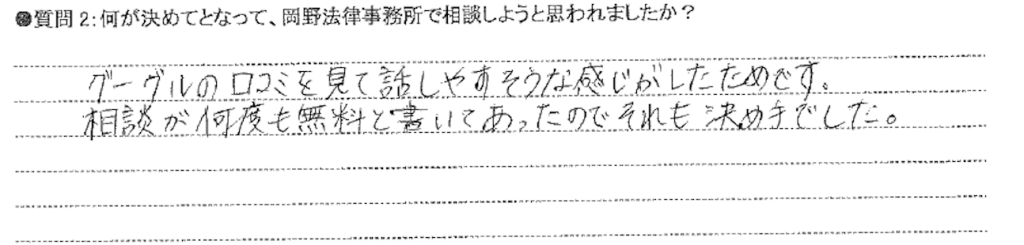 ●質問2:何が決めてとなって、岡野法律事務所で相談しようと思われましたか？
グーグルの口コミを見て話しやすそうな感じがしたためです。
相談が何度も無料と書いてあったのでそれも決め手でした。